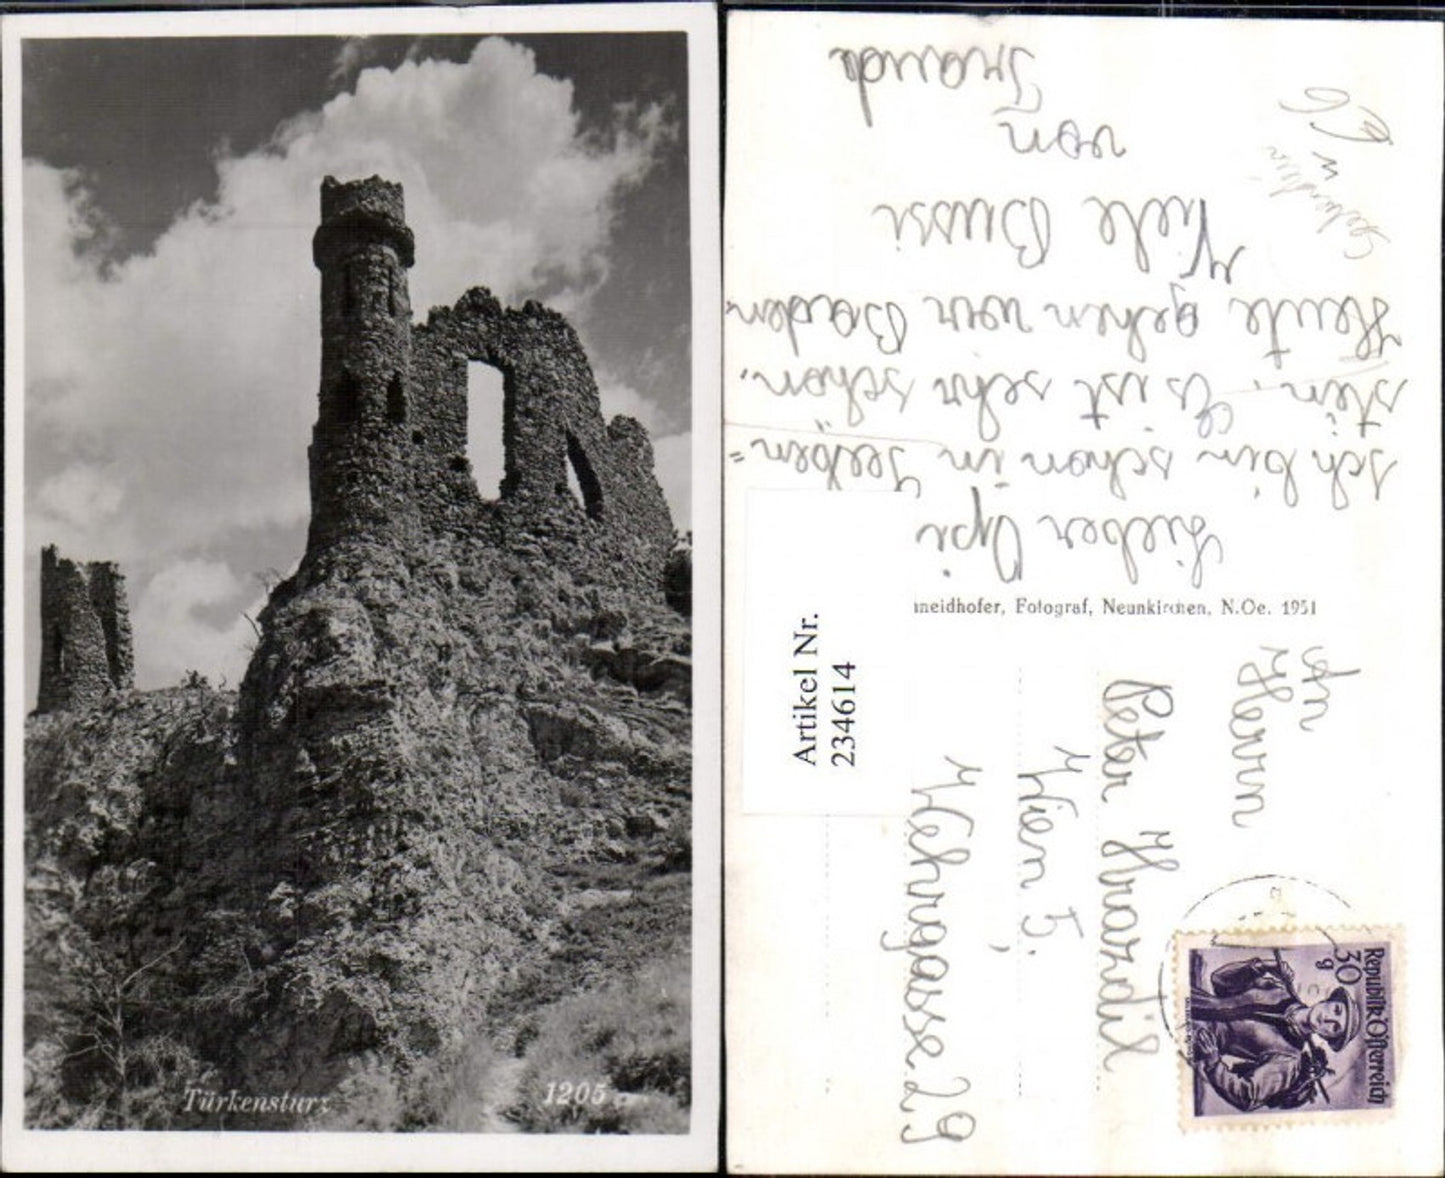 Türkensturz
1205
Lieber Opi
ich bin schon in Seeben=
stein. Es ist sehr schön.
Heute gehen wir Baden.
Viele Bussi
von
Traude
neidhofer, Fotograf, Neunkirchen, N.Oe. 1951
Artikel Nr.
234614
An
Herrn
Peter Hrazdil
Wien 5.
Wehrgasse 29
Republik Österreich
30 g